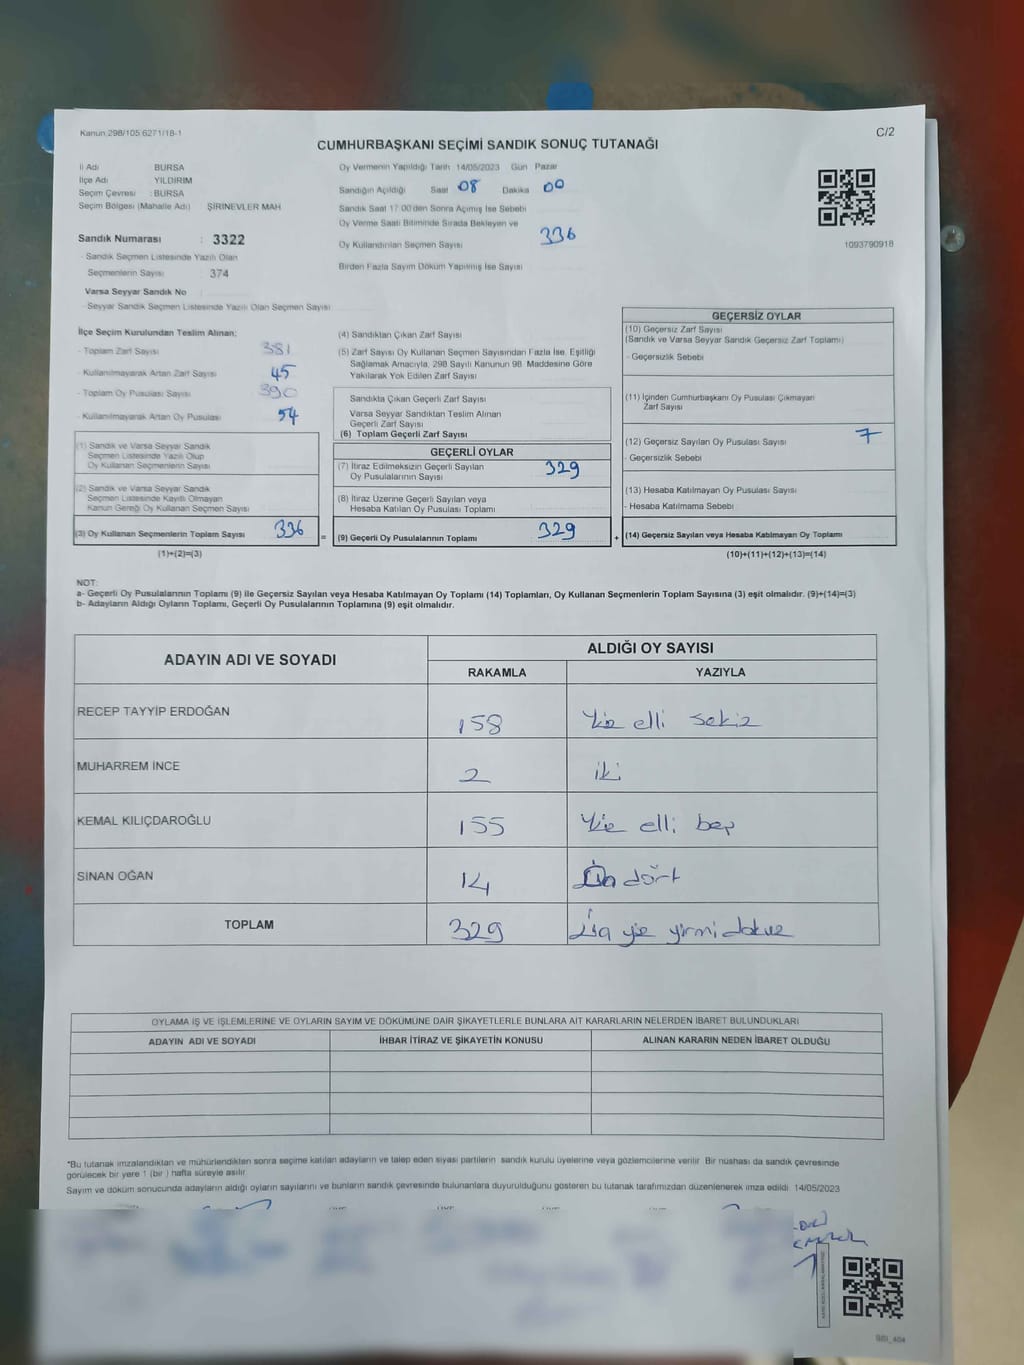 Kanun 298/105 6271/18-1
C/2
CUMHURBAŞKANI SEÇİMİ SANDIK SONUÇ TUTANAĞI
İl Adı BURSA
İlçe Adı YILDIRIM
Seçim Çevresi : BURSA
Seçim Bölgesi (Mahalle Adı) ŞİRİNEVLER MAH
Sandık Numarası : 3322
- Sandık Seçmen Listesinde Yazılı Olan
Seçmenlerin Sayısı : 374
Varsa Seyyar Sandık No
- Seyyar Sandık Seçmen Listesinde Yazılı Olan Seçmen Sayısı
Oy Vermenin Yapıldığı Tarih 14/05/2023 Gün Pazar
Sandığın Açıldığı Saat 08 Dakika 00
Sandık Saat 17:00'den Sonra Açımış İse Sebebi
Oy Verme Saati Bitiminde Sırada Bekleyen ve
Oy Kullandırılan Seçmen Sayısı 336
Birden Fazla Sayım Döküm Yapılmış İse Sayısı
1093790918
İlçe Seçim Kurulundan Teslim Alınan;
- Toplam Zarf Sayısı 381
- Kullanılmayarak Artan Zarf Sayısı 45
- Toplam Oy Pusulası Sayısı 390
- Kullanılmayarak Artan Oy Pusulası 54
(1) Sandık ve Varsa Seyyar Sandık
Seçmen Listesinde Yazılı Olup
Oy Kullanan Seçmenlerin Sayısı
(2) Sandık ve Varsa Seyyar Sandık
Seçmen Listesinde Kayıtlı Olmayan
Kanun Gereği Oy Kullanan Seçmen Sayısı
(3) Oy Kullanan Seçmenlerin Toplam Sayısı 336
(1)+(2)=(3)
(4) Sandıktan Çıkan Zarf Sayısı
(5) Zarf Sayısı Oy Kullanan Seçmen Sayısından Fazla İse, Eşitliği
Sağlamak Amacıyla, 298 Sayılı Kanunun 98. Maddesine Göre
Yakılarak Yok Edilen Zarf Sayısı
Sandıkta Çıkan Geçerli Zarf Sayısı
Varsa Seyyar Sandıktan Teslim Alınan
Geçerli Zarf Sayısı
(6) Toplam Geçerli Zarf Sayısı
GEÇERLİ OYLAR
(7) İtiraz Edilmeksizin Geçerli Sayılan
Oy Pusulalarının Sayısı 329
(8) İtiraz Üzerine Geçerli Sayılan veya
Hesaba Katılan Oy Pusulası Toplamı
= (9) Geçerli Oy Pusulalarının Toplamı 329 +
GEÇERSİZ OYLAR
(10) Geçersiz Zarf Sayısı
(Sandık ve Varsa Seyyar Sandık Geçersiz Zarf Toplamı)
- Geçersizlik Sebebi
(11) İçinden Cumhurbaşkanı Oy Pusulası Çıkmayan
Zarf Sayısı
(12) Geçersiz Sayılan Oy Pusulası Sayısı 7
- Geçersizlik Sebebi
(13) Hesaba Katılmayan Oy Pusulası Sayısı
- Hesaba Katılmama Sebebi
(14) Geçersiz Sayılan veya Hesaba Katılmayan Oy Toplamı
(10)+(11)+(12)+(13)=(14)
NOT:
a- Geçerli Oy Pusulalarının Toplamı (9) ile Geçersiz Sayılan veya Hesaba Katılmayan Oy Toplamı (14) Toplamları, Oy Kullanan Seçmenlerin Toplam Sayısına (3) eşit olmalıdır. (9)+(14)=(3)
b- Adayların Aldığı Oyların Toplamı, Geçerli Oy Pusulalarının Toplamına (9) eşit olmalıdır.
ADAYIN ADI VE SOYADI
ALDIĞI OY SAYISI
RAKAMLA YAZIYLA
RECEP TAYYİP ERDOĞAN 158 Yüz elli sekiz
MUHARREM İNCE 2 iki
KEMAL KILIÇDAROĞLU 155 Yüz elli beş
SİNAN OĞAN 14 On dört
TOPLAM 329 Üç yüz yirmi dokuz
OYLAMA İŞ VE İŞLEMLERİNE VE OYLARIN SAYIM VE DÖKÜMÜNE DAİR ŞİKAYETLERLE BUNLARA AİT KARARLARIN NELERDEN İBARET BULUNDUKLARI
ADAYIN ADI VE SOYADI İHBAR İTİRAZ VE ŞİKAYETİN KONUSU ALINAN KARARIN NEDEN İBARET OLDUĞU
*Bu tutanak imzalandıktan ve mühürlendikten sonra seçime katılan adayların ve talep eden siyasi partilerin sandık kurulu üyelerine veya gözlemcilerine verilir. Bir nüshası da sandık çevresinde
görülecek bir yere 1 (bir ) hafta süreyle asılır.
Sayım ve döküm sonucunda adayların aldığı oyların sayılarını ve bunların sandık çevresinde bulunanlara duyurulduğunu gösteren bu tutanak tarafımızdan düzenlenerek imza edildi. 14/05/2023